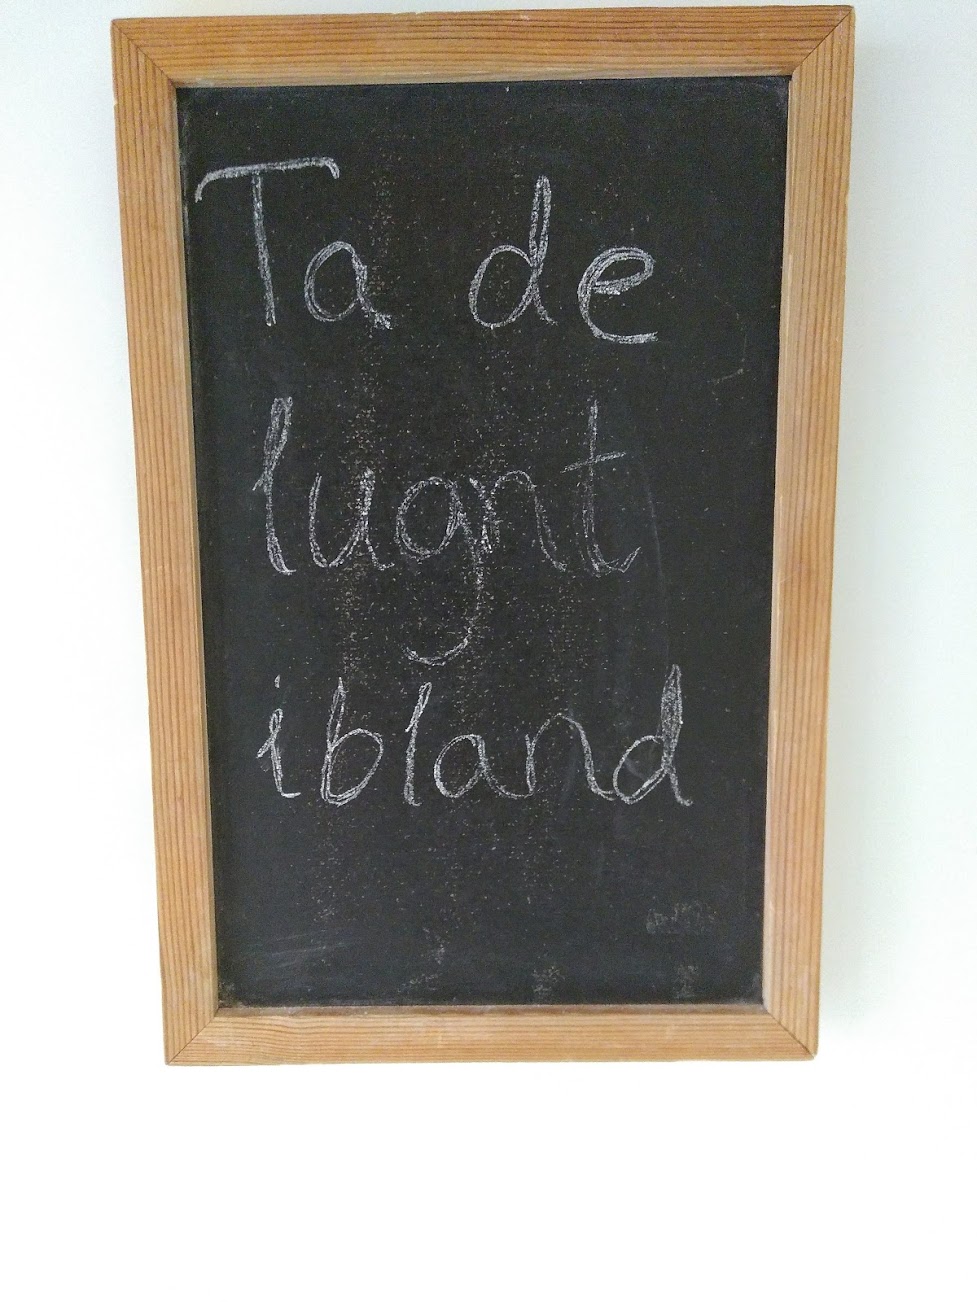 Ta de
lugnt
ibland